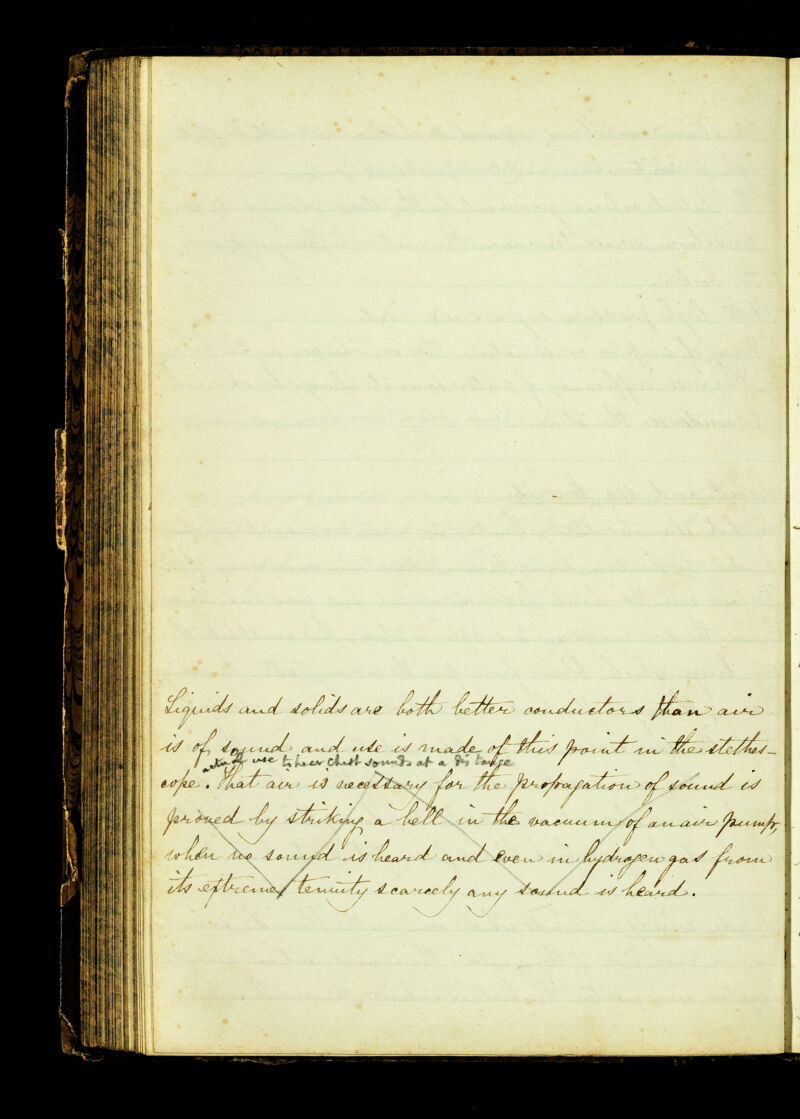 Liquids and solids are both better conductors than air
is of sound and use is made of this point in the stethes-
use to hear chest sounds at a distance
cope. That air is necessary for the propagation of sound is
proved by striking a bell in the vacuum of an air pump,
when no sound is heard and even in hydrogen gas from
its extreme tenuity scarcely any sound is heard.